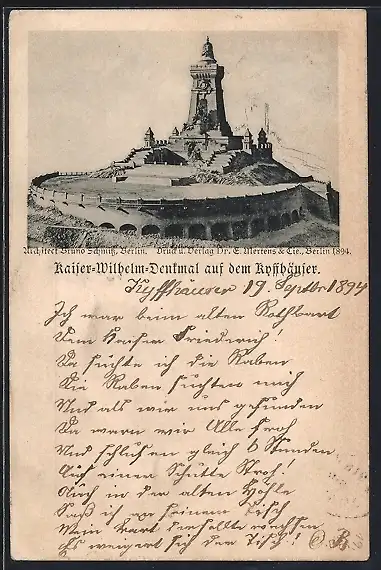 Architect Bruno Schmitz, Berlin. Druck u. Verlag Dr. E. Mertens & Cie., Berlin 1894.
Kaiser-Wilhelm-Denkmal auf dem Kyffhäuser.
Kyffhäuser 19. Septbr 1894
Ich war beim alten Rothbart
Dem Kaiser Friederich!
Da suchte ich die Raben
Die Raben suchten mich
Und als wir uns gefunden
Da warn wir Alle froh
Und schlufen gleich 6 Stunden
Auf einer Schütte Stroh!
Auch in der alten Höhle
Saß ich an seinem Tisch
Mein Bart der sollte wachsen
Es weigert sich der Tisch!